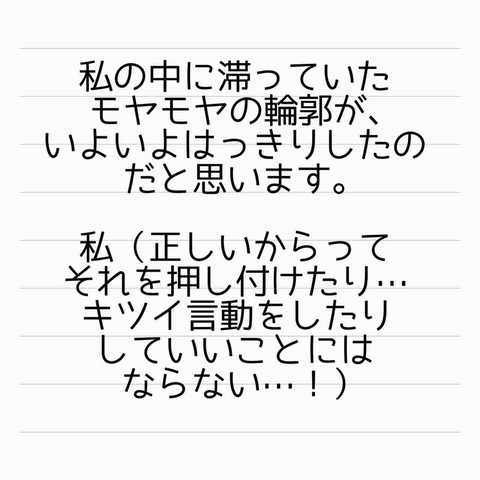 私の中に滞っていた
モヤモヤの輪郭が、
いよいよはっきりしたの
だと思います。
私（正しいからって
それを押し付けたり…
キツイ言動をしたり
していいことには
ならない…！）